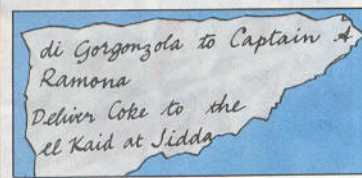 di Gorgonzola to Captain of
Ramona
Deliver Coke to the
el Kaid at Jidda